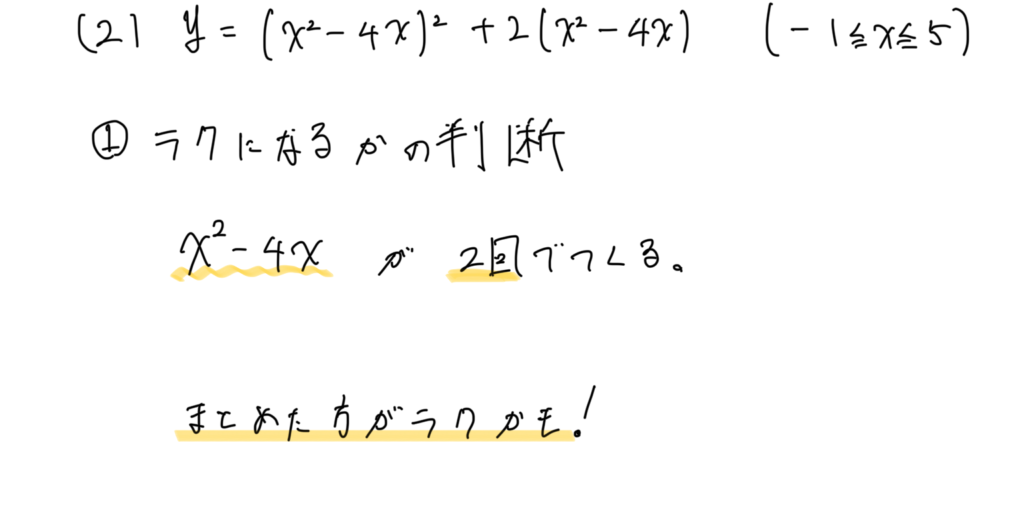 (2) y = (x²-4x)² + 2(x²-4x) (-1≦x≦5)
① ラクになるかの判断
x²-4x が 2回でてくる。
まとめた方がラクかも!